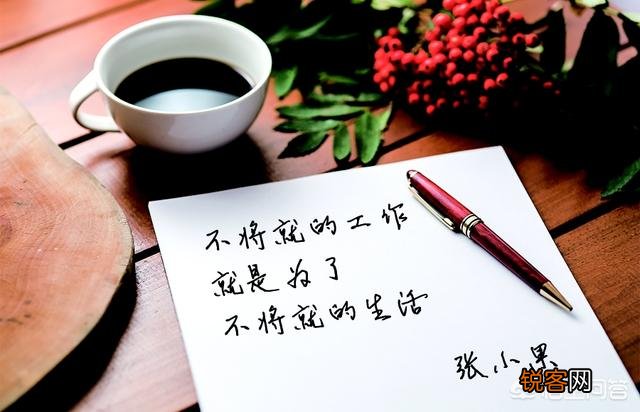 不将就的工作
就是为了
不将就的生活
张小果
锐客网